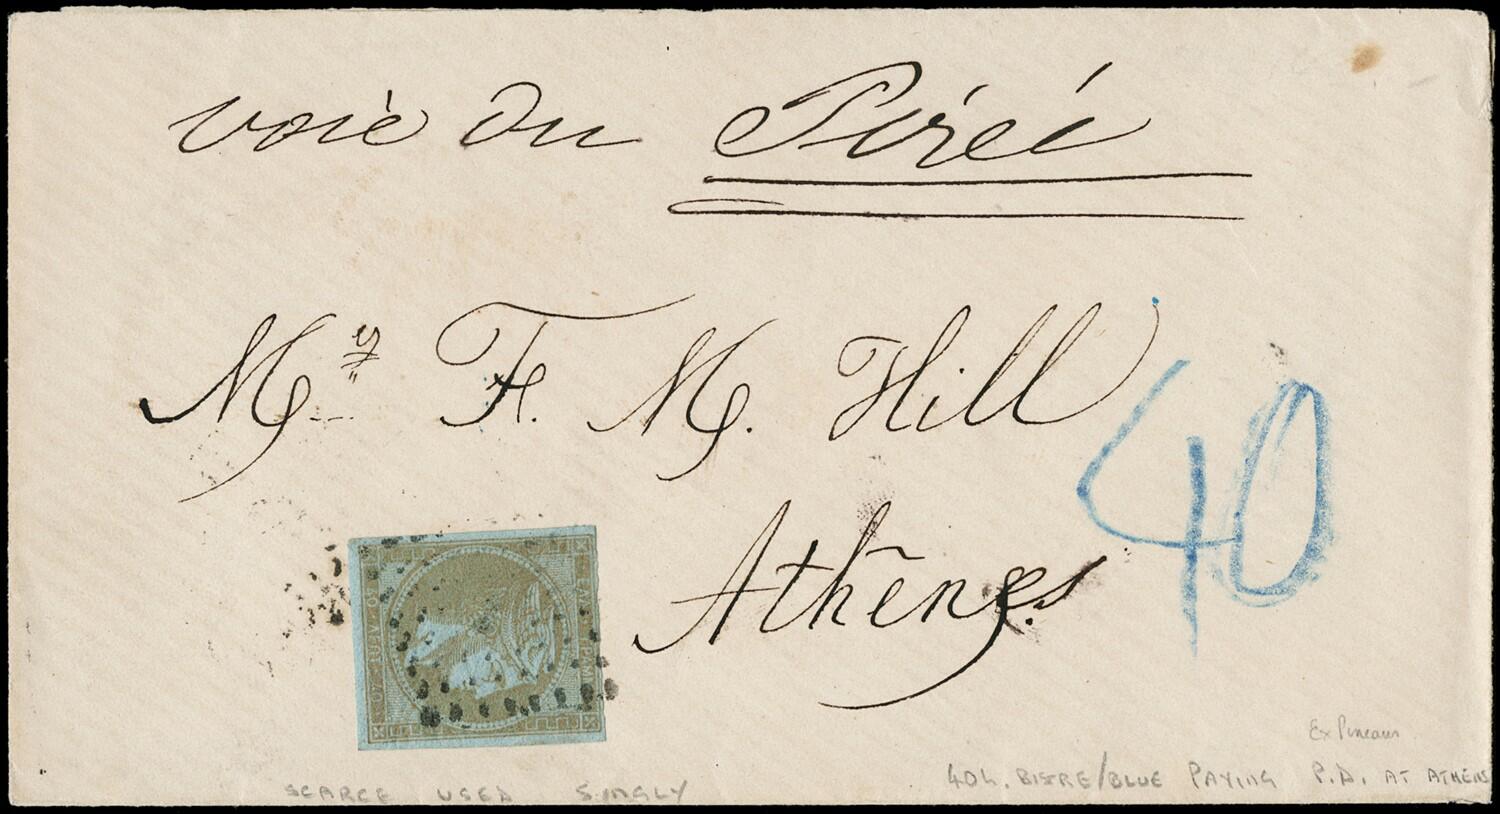 voie du Pirée
Mr. F. M. Hill
40
Athènes.
Ex Pineau
SCARCE USED SINGLY
40L. BISTRE/BLUE PAYING P.D. AT ATHENS